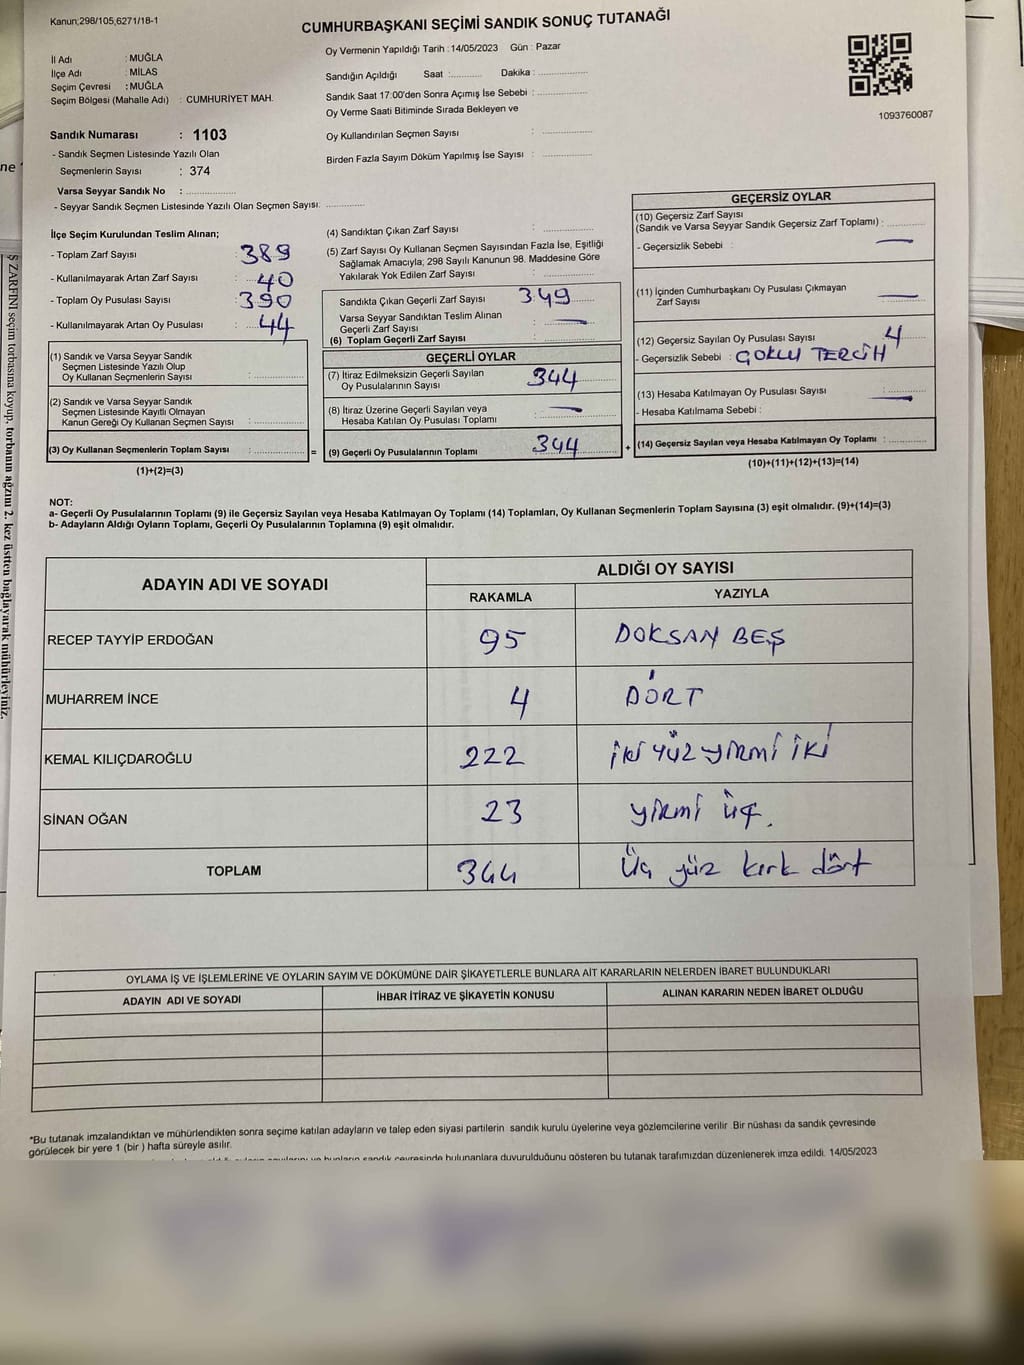 Kanun;298/105,6271/18-1
CUMHURBAŞKANI SEÇİMİ SANDIK SONUÇ TUTANAĞI
İl Adı : MUĞLA
İlçe Adı : MİLAS
Seçim Çevresi : MUĞLA
Seçim Bölgesi (Mahalle Adı) : CUMHURİYET MAH.
Sandık Numarası : 1103
- Sandık Seçmen Listesinde Yazılı Olan
Seçmenlerin Sayısı : 374
Varsa Seyyar Sandık No :
- Seyyar Sandık Seçmen Listesinde Yazılı Olan Seçmen Sayısı:
Oy Vermenin Yapıldığı Tarih :14/05/2023 Gün : Pazar
Sandığın Açıldığı Saat : Dakika :
Sandık Saat 17:00'den Sonra Açımış İse Sebebi :
Oy Verme Saati Bitiminde Sırada Bekleyen ve
Oy Kullandırılan Seçmen Sayısı :
Birden Fazla Sayım Döküm Yapılmış İse Sayısı :
1093760087
İlçe Seçim Kurulundan Teslim Alınan;
- Toplam Zarf Sayısı : 389
- Kullanılmayarak Artan Zarf Sayısı : 40
- Toplam Oy Pusulası Sayısı : 390
- Kullanılmayarak Artan Oy Pusulası : 44
(1) Sandık ve Varsa Seyyar Sandık
Seçmen Listesinde Yazılı Olup
Oy Kullanan Seçmenlerin Sayısı :
(2) Sandık ve Varsa Seyyar Sandık
Seçmen Listesinde Kayıtlı Olmayan
Kanun Gereği Oy Kullanan Seçmen Sayısı :
(3) Oy Kullanan Seçmenlerin Toplam Sayısı :
(1)+(2)=(3)
=
(4) Sandıktan Çıkan Zarf Sayısı :
(5) Zarf Sayısı Oy Kullanan Seçmen Sayısından Fazla İse, Eşitliği
Sağlamak Amacıyla; 298 Sayılı Kanunun 98. Maddesine Göre
Yakılarak Yok Edilen Zarf Sayısı :
Sandıkta Çıkan Geçerli Zarf Sayısı : 349
Varsa Seyyar Sandıktan Teslim Alınan
Geçerli Zarf Sayısı : —
(6) Toplam Geçerli Zarf Sayısı :
GEÇERLİ OYLAR
(7) İtiraz Edilmeksizin Geçerli Sayılan
Oy Pusulalarının Sayısı : 344
(8) İtiraz Üzerine Geçerli Sayılan veya
Hesaba Katılan Oy Pusulası Toplamı : —
(9) Geçerli Oy Pusulalarının Toplamı : 344
+
GEÇERSİZ OYLAR
(10) Geçersiz Zarf Sayısı
(Sandık ve Varsa Seyyar Sandık Geçersiz Zarf Toplamı) :
- Geçersizlik Sebebi : —
(11) İçinden Cumhurbaşkanı Oy Pusulası Çıkmayan
Zarf Sayısı : —
(12) Geçersiz Sayılan Oy Pusulası Sayısı : 4
- Geçersizlik Sebebi : ÇOKLU TERCİH
(13) Hesaba Katılmayan Oy Pusulası Sayısı : —
- Hesaba Katılmama Sebebi :
(14) Geçersiz Sayılan veya Hesaba Katılmayan Oy Toplamı :
(10)+(11)+(12)+(13)=(14)
NOT:
a- Geçerli Oy Pusulalarının Toplamı (9) ile Geçersiz Sayılan veya Hesaba Katılmayan Oy Toplamı (14) Toplamları, Oy Kullanan Seçmenlerin Toplam Sayısına (3) eşit olmalıdır. (9)+(14)=(3)
b- Adayların Aldığı Oyların Toplamı, Geçerli Oy Pusulalarının Toplamına (9) eşit olmalıdır.
ADAYIN ADI VE SOYADI
ALDIĞI OY SAYISI
RAKAMLA YAZIYLA
RECEP TAYYİP ERDOĞAN 95 DOKSAN BEŞ
MUHARREM İNCE 4 DÖRT
KEMAL KILIÇDAROĞLU 222 iki yüz yirmi iki
SİNAN OĞAN 23 yirmi üç.
TOPLAM 344 Üç yüz kırk dört
OYLAMA İŞ VE İŞLEMLERİNE VE OYLARIN SAYIM VE DÖKÜMÜNE DAİR ŞİKAYETLERLE BUNLARA AİT KARARLARIN NELERDEN İBARET BULUNDUKLARI
ADAYIN ADI VE SOYADI İHBAR İTİRAZ VE ŞİKAYETİN KONUSU ALINAN KARARIN NEDEN İBARET OLDUĞU
*Bu tutanak imzalandıktan ve mühürlendikten sonra seçime katılan adayların ve talep eden siyasi partilerin sandık kurulu üyelerine veya gözlemcilerine verilir .Bir nüshası da sandık çevresinde
görülecek bir yere 1 (bir ) hafta süreyle asılır.
sandık çevresinde bulunanlara duyurulduğunu gösteren bu tutanak tarafımızdan düzenlenerek imza edildi. 14/05/2023
ne
Ş ZARFINI seçim torbasına koyup, torbanın ağzını 2. kez üstten bağlayarak mühürleyiniz.